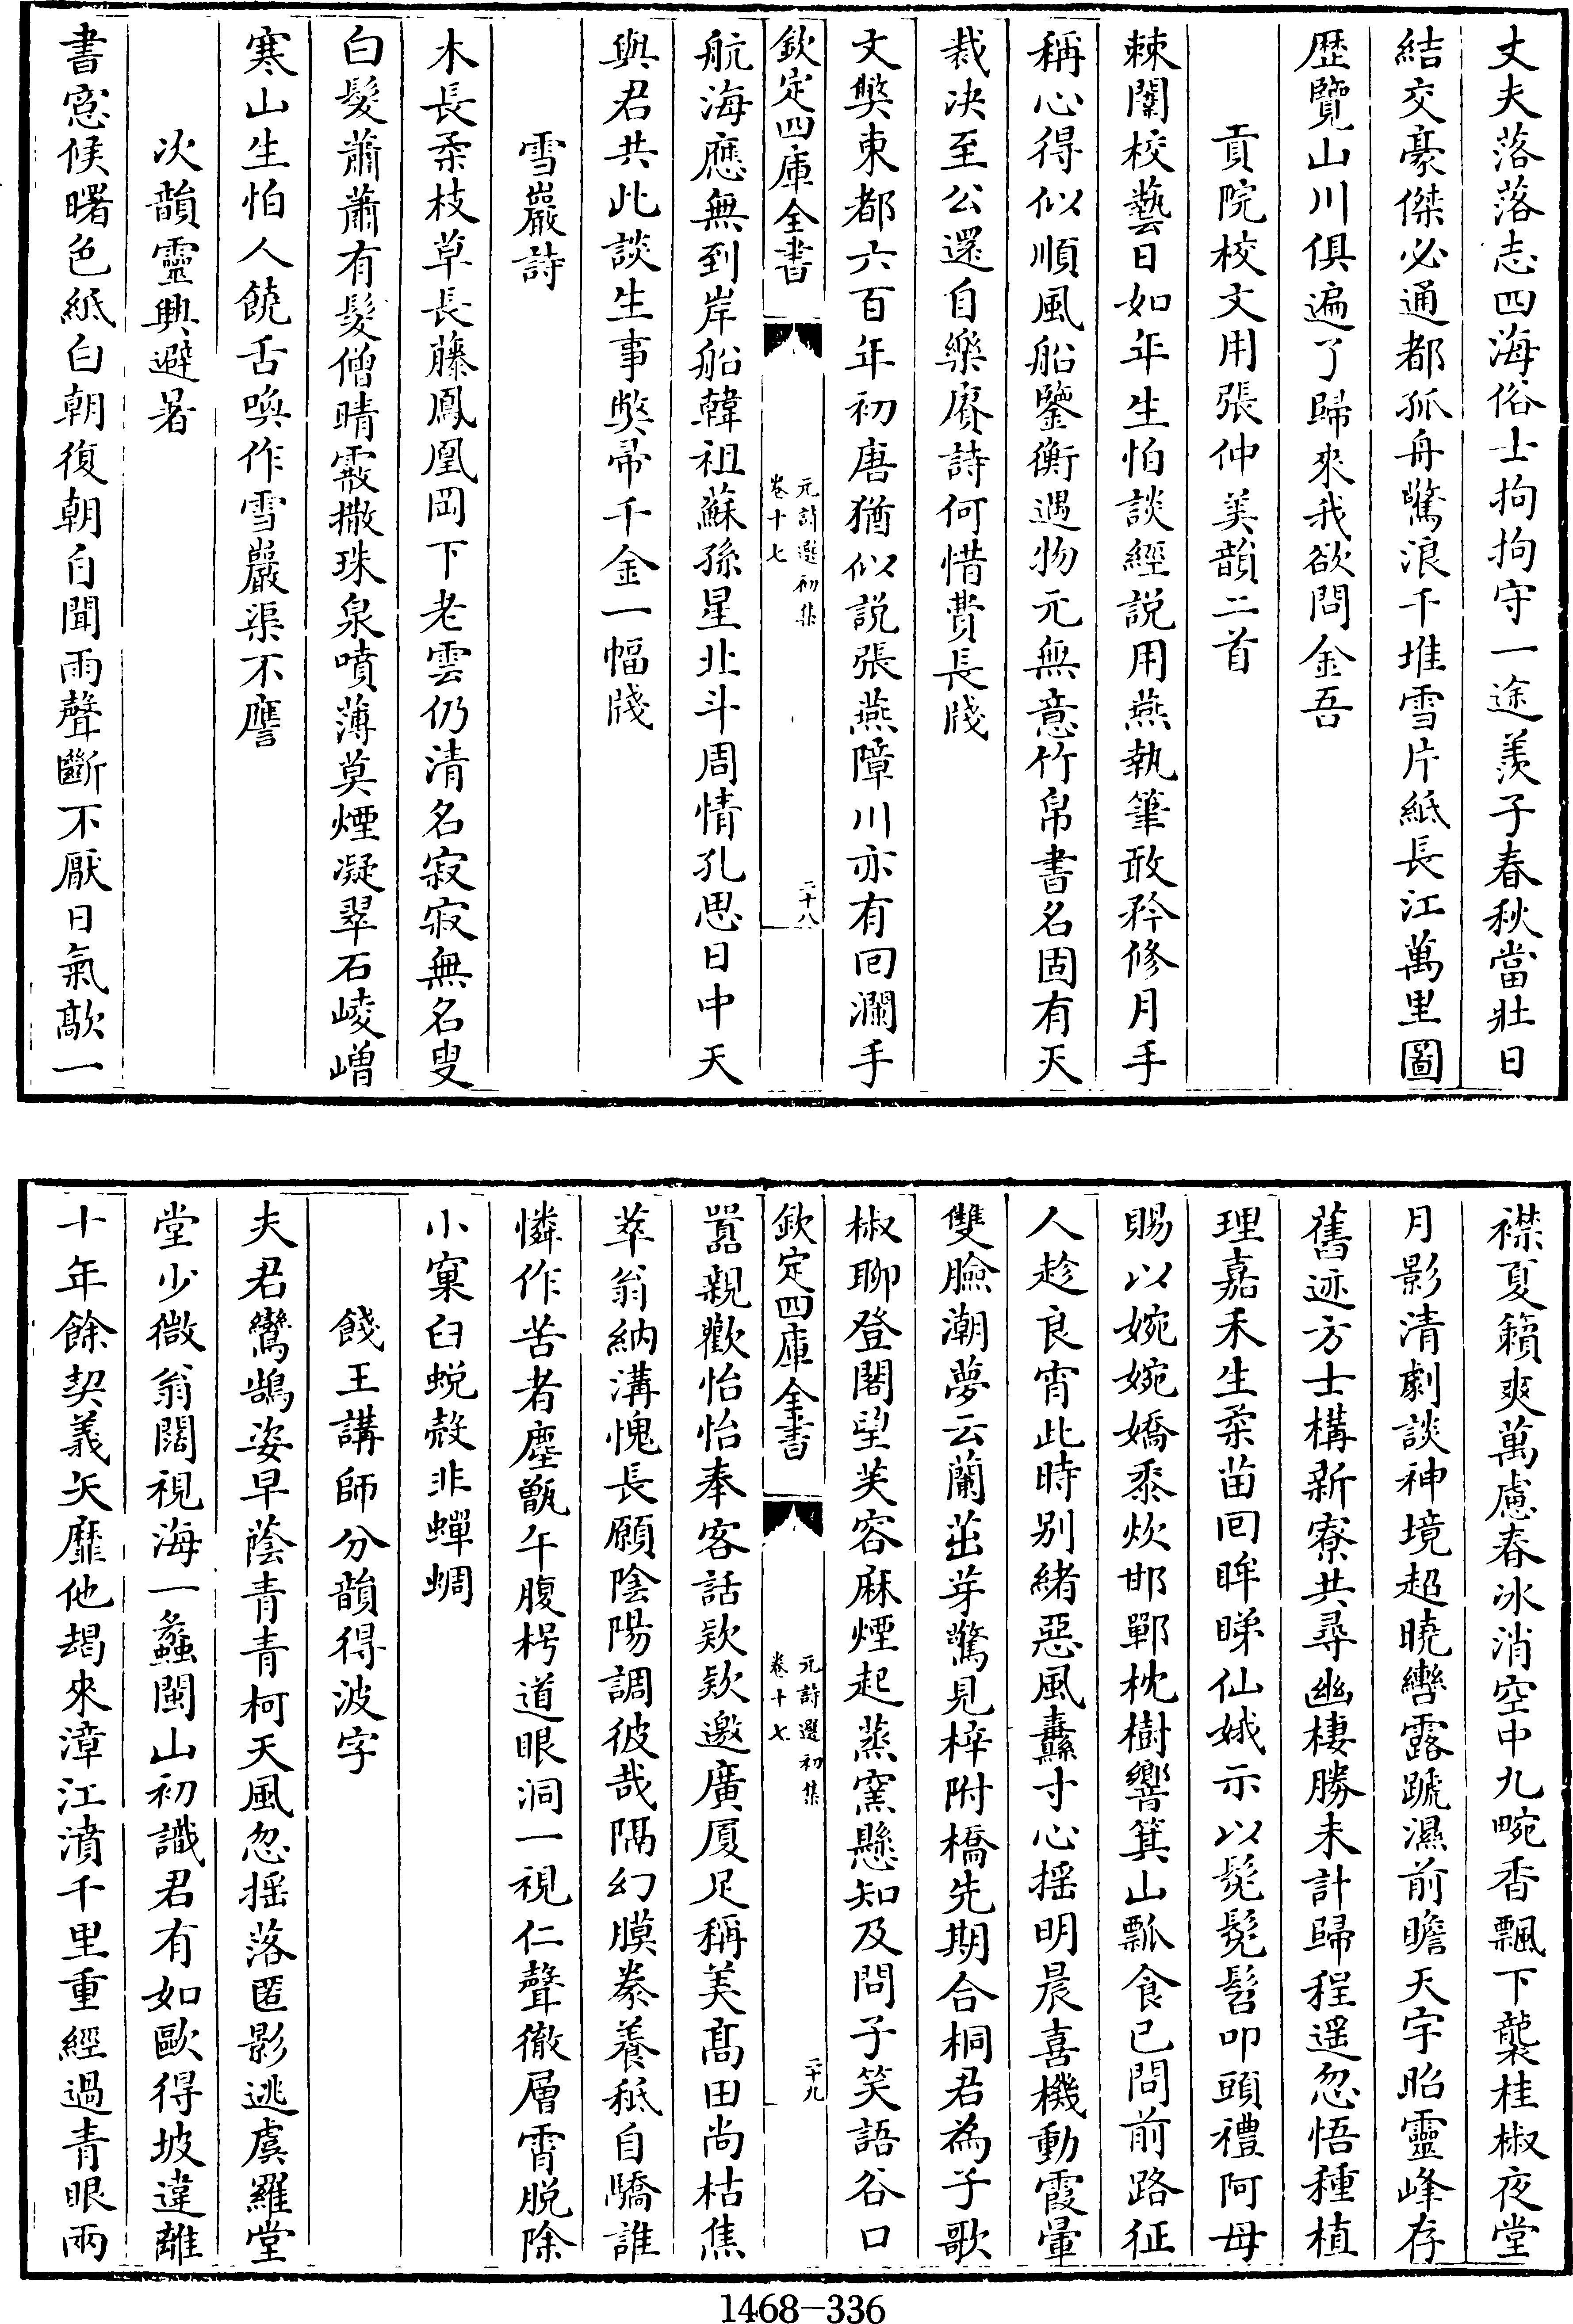 丈夫落落志四海俗士拘拘守一途羨子春秋當壯日
結交豪傑必通都孤舟驚浪千堆雪片紙長江萬里圖
歴覽山川俱遍了歸來我欲問金吾
貢院校文用張仲美韻二首
棘闈校藝日如年生怕談經說用燕執筆敢矜修月手
稱心得似順風船鑒衡遇物元無意竹帛書名固有天
裁决至公還自樂賡詩何惜費長牋
文獘東都六百年初唐猶似說張燕障川亦有回瀾手
欽定四庫全書
元詩選初集
卷十七
二十八
航海應無到岸船韓祖蘇孫星北斗周情孔思日中天
與君共此談生事獘帚千金一幅牋
雪巖詩
木長柔枝草長藤鳳凰岡下老雲仍清名寂寂無名叟
白髮蕭蕭有髮僧晴霰撒珠泉噴薄莫煙凝翠石崚嶒
寒山生怕人饒舌喚作雪巖渠不譍
次韻靈興避暑
書窓候曙色紙白朝復朝自聞雨聲斷不厭日氣歊一
襟夏籟爽萬慮春冰消空中九畹香飄下襲桂椒夜堂
月影清劇談神境超曉轡露蹏濕前瞻天宇昭靈峰存
舊迹方士構新寮共尋幽棲勝未計歸程遥忽悟種植
理嘉禾生柔苗回眸睇仙娥示以髧髧髫叩頭禮阿母
賜以婉婉嬌黍炊邯鄲枕樹響箕山瓢食已問前路征
人趁良宵此時别緒惡風纛寸心揺明晨喜機動霞暈
雙臉潮夢云蘭茁芽驚見梓附橋先期合桐君為子歌
椒聊登閣望芙容麻煙起蒸窯懸知及問子笑語谷口
欽定四庫全書
元詩選初集
卷十七
二十九
囂親歡怡怡奉客話欵欵邀廣厦足稱美髙田尚枯焦
萃翁納溝愧長願陰陽調彼哉隔幻膜豢養秪自驕誰
憐作苦者塵甑午腹枵道眼洞一視仁聲徹層霄脱除
小窠臼蜕殻非蟬蜩
餞王講師分韻得波字
夫君鸞鵠姿早蔭青青柯天風忽揺落匿影逃虞羅堂
堂少微翁闊視海一蠡閩山初識君有如歐得坡違離
十年餘契義矢靡他朅來漳江濆千里重經過青眼兩
1468—336